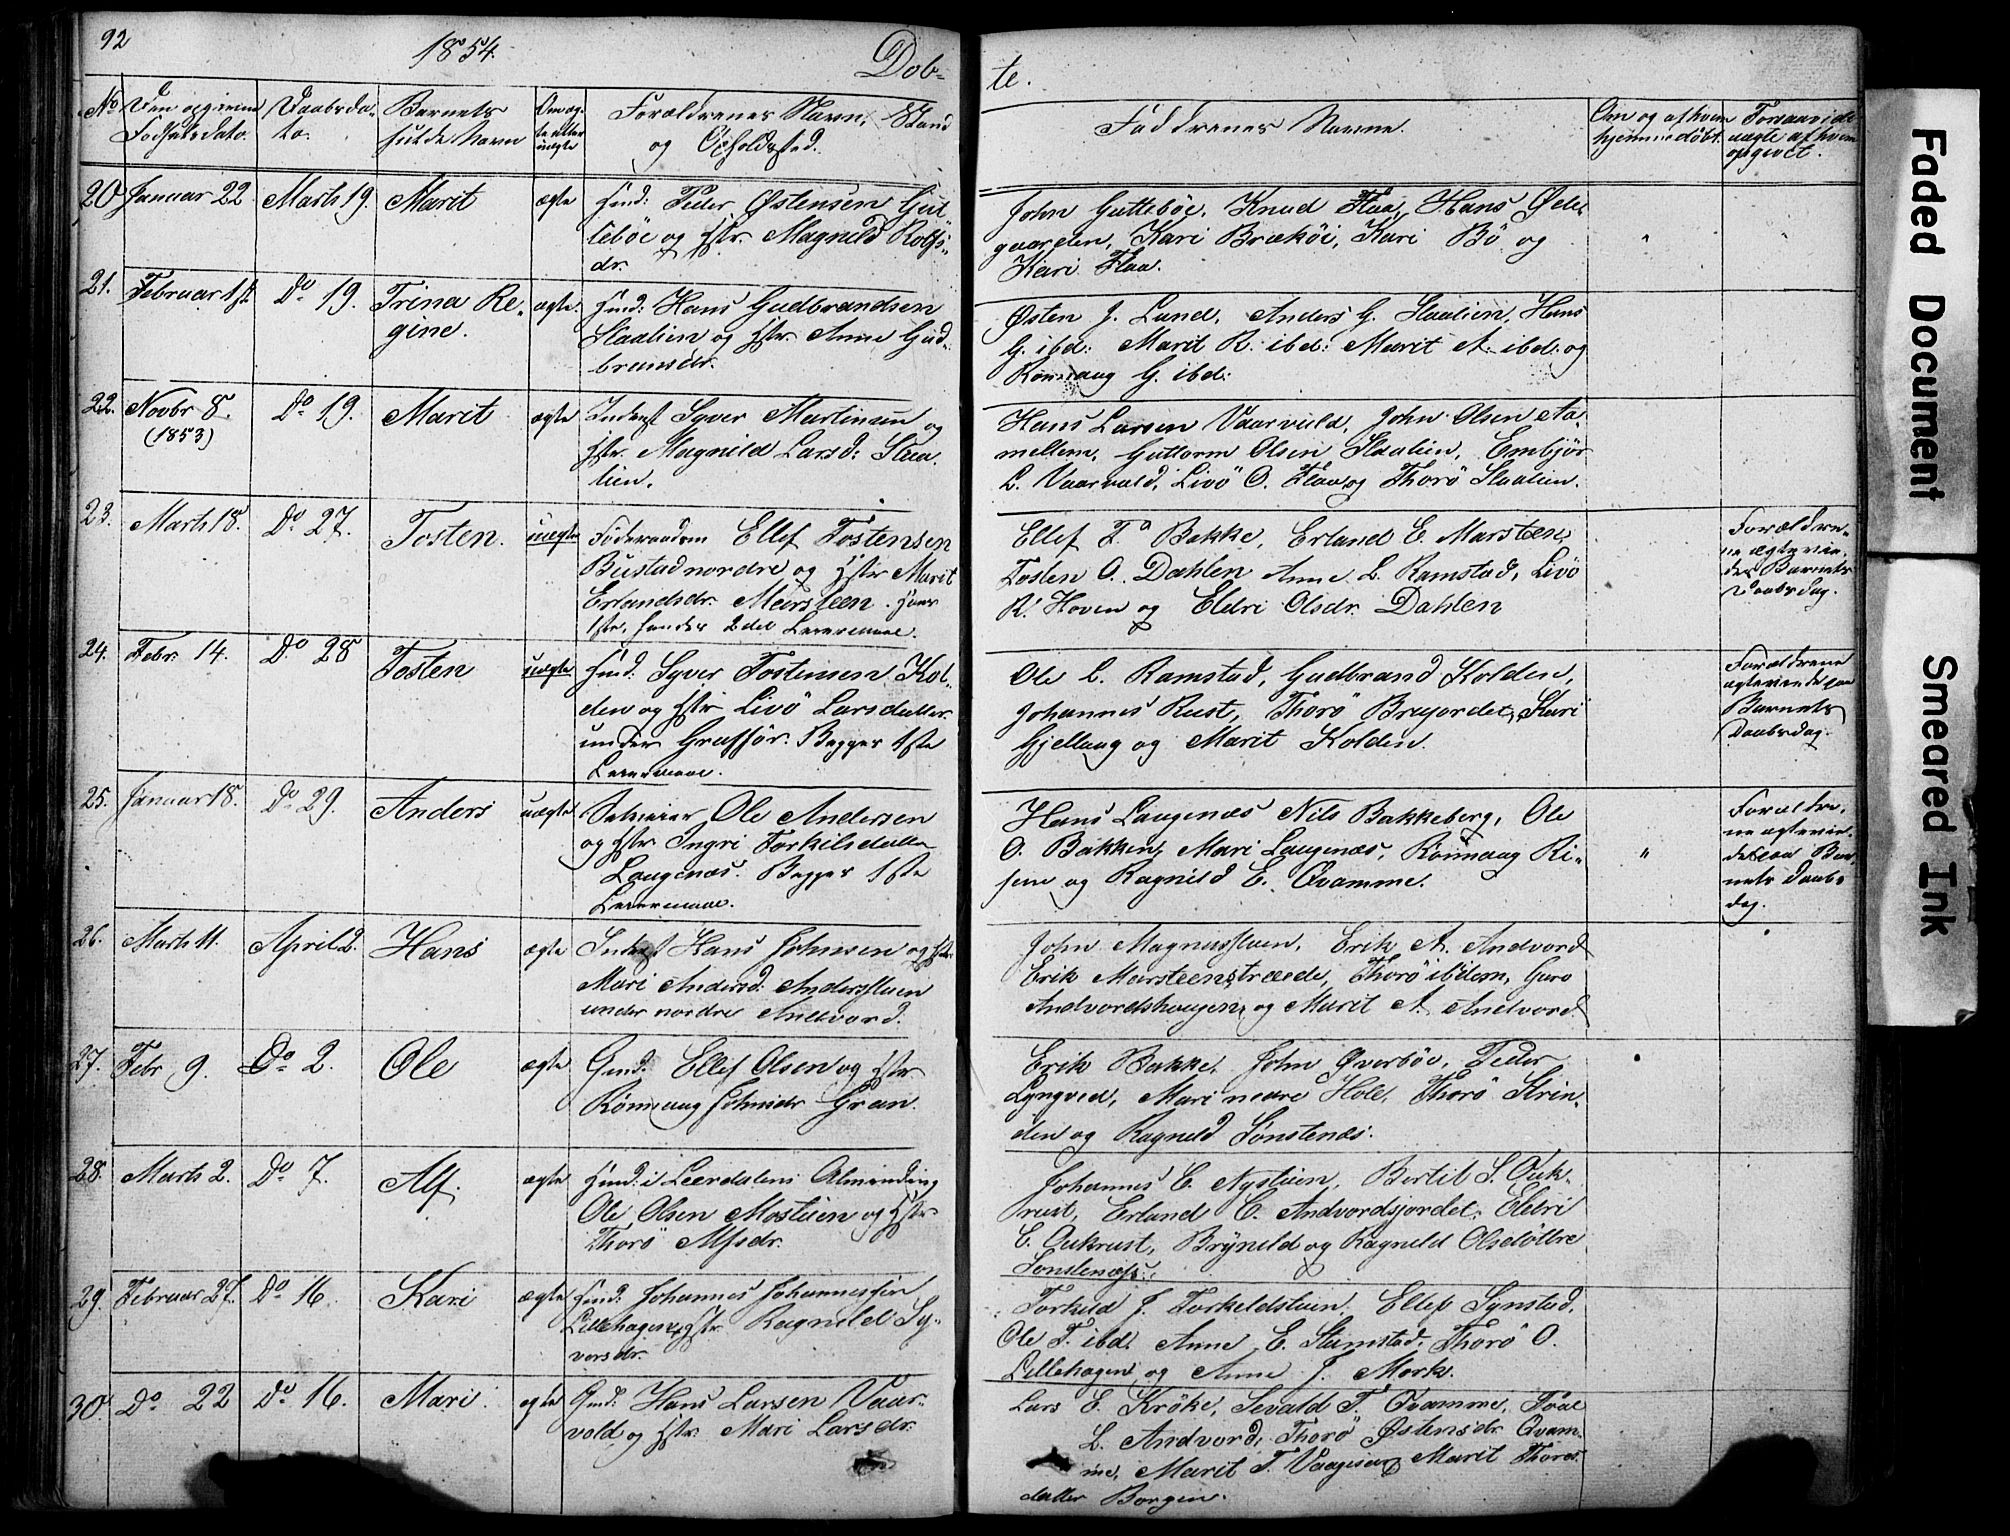 92
1854.
Dob-
te.
No
Den opgivne
Fødselsdato
Daabsda-
to.
Barnets
fulde Navn
Om æg-
te eller
uægte
Forældrenes Navn, Stand
og Opholdssted.
Faddrenes Navne.
Om og af hvem
hjemmedøbt.
uægte af hvem
opgivet.
20 Januar 22 Marts 19. Marit ægte Gmd: Peder Østensen Gut-
tebøe og Hstr. Magnild Rolfs-
dr.
John Guttebøe, Knud Flaa, Hans Øde-
gaarden, Kari Brækøi, Kari Bö og
Kari Flaa.
21. Februar 1ste Do 19. Trina Re- ægte. Hmd: Hans Gudbrandsen
gine. Slaalien og Hstr. Anne Gud-
bransdr.
Østen J. Lund, Anders G. Slaalien, Hans
G. ibd: Marit R. ibd: Marit A. ibd: og
Rönnaug G. ibd:
22. Novbr 8. Do 19. Marit ægte Inderst Syver Martinsen og
(1853) Hstr. Magnild Larsd: Slaa-
lien.
Hans Larsen Vaarvuld, John Olsen Aa-
mellem, Guttorm Olsen Slaalien, Embjør
L. Vaarvuld, Livö O. Flaa og Thorö Slaalien.
23. Marts 18. Do 27. Tosten. uægte Föderaadsm Ellef Tostensen
Bustad nordre og Hstr Marit
Erlandsdr. Marsteen. Hans
1ste, hendes 2det Leiermaal.
Ellef T. Bakke, Erland E. Marsteen,
Tosten O. Dahlen Anne L. Ramstad, Livö
R. Hoven og Eldri Olsdr. Dahlen
Forældre-
ne ægtevie-
des Barnets
Daabsdag.
24. Febr. 14. Do 28 Tosten uægte Hmd: Syver Tostensen Kol-
den og Hstr Livö Larsdatter
under Graffer. Begges 1ste
Leiermaal.
Ole L. Ramstad, Gudbrand Kolden,
Johannes Rust, Thorö Bræjordet, Kari
Gjellaug og Marit Kolden.
Forældrene
ægteviede paa
Barnets
Daabsdag.
25. Januar 18. Do 29. Anders uægte Selveier Ole Andersen
og Hstr Ingri Torkilsdatter
Laugenæs. Begges 1ste
Leiermaal.
Hans Laugenæs Nils Bakkeberg, Ole
O. Bakken, Mari Laugenæs, Rönnaug Ri-
sem og Ragnild E. Qvamme.
Forældre-
ne ægtevie-
de paa Bar-
nets Daabs-
dag.
26. Marts 11. April 2. Hans ægte Inderst Hans Johnsen og Hstr
Mari Andersd: Andersstuen
under nordre Andvord.
John Magnusstuen, Erik A. Andvord
Erik Marsteenstræde, Thorö ibidem, Guro
Andvordshougen og Marit A. Andvord
27. Febr 9. Do 2. Ole ægte Gmd: Ellef Olsen og Hstr.
Rönnaug Johnsdr Gran.
Erik Bakke, John Øverbøe, Peder
Lyngved, Mari nedre Hole, Thorö Strin-
den og Ragnild Sönstenæs.
28. Marts 2. Do 7. Alf. ægte Hmd: i Leerdalens Alminding
Ole Olsen Mostuen og Hstr
Thorö Alfsdr.
Johannes E. Nystuen, Bertil S. Ouk-
rust, Erland E. Andvordsjordet, Eldri
E. Oukrust, Brynild og Ragnild Olsdöttre
Sönstenæs.
29. Februar 27. Do 16. Kari ægte Hmd: Johannes Johannessen
Lillehagen, Hstr. Ragnild Sy-
versdr.
Torkild J. Torkeldstuen, Ellef Synstad,
Ole T. ibd. Anne E. Stamstad, Thorö O.
Lillehagen og Anne J. Mork.
30. Do 22 Do 16. Mari ægte Gmd: Hans Larsen Vaar-
vold og Hstr. Mari Larsdr.
Lars E. Kröke, Sevald T. Qvamme, Paal
L. Andvord, Thorö Østensdr Qvam-
me, Marit T. Marit Thores-
datter Borgen.
Faded Document
Smeared Ink